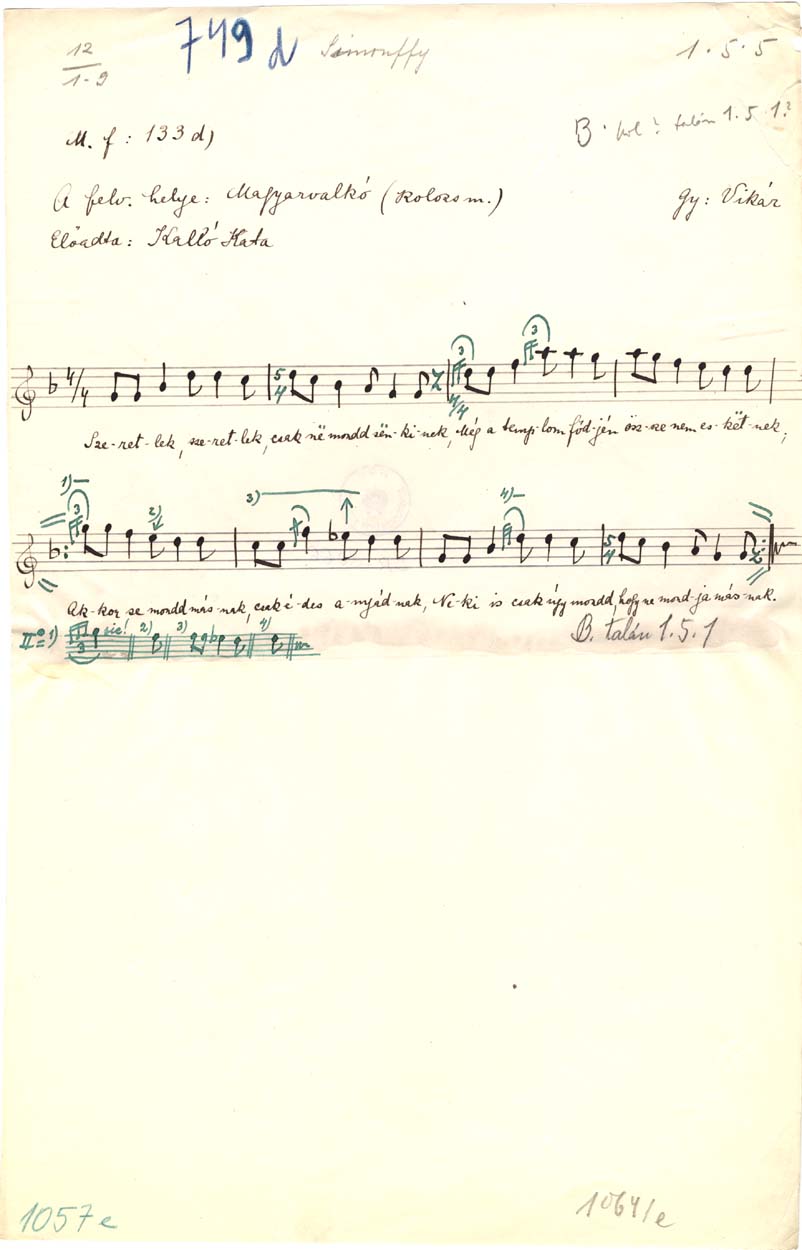 12
1-9
749 d
Simonffy
1.5.5
M. f: 133 d)
B. talán 1.5.1?
A felv. helye: Magyarvalkó (Kolozsm.)
Gy: Vikár
Előadta: Kalló Kata
3
3
4/4
5/4
4/4
Sze-ret-lek, sze-ret-lek, csak në mondd sën-ki-nek, Még a temp-lom föd-jén ösz-sze nem es-két-nek;
1)
3
2)
3)
4)
5/4
Ak-kor se mondd más-nak, csak é-des a-nyád-nak, Ne-ki is csak úgy mondd, hogy ne mond-ja más-nak.
II° = 1) sic! 2) 3) 4)
3
B. talán 1.5.1
1057 e
1064/e